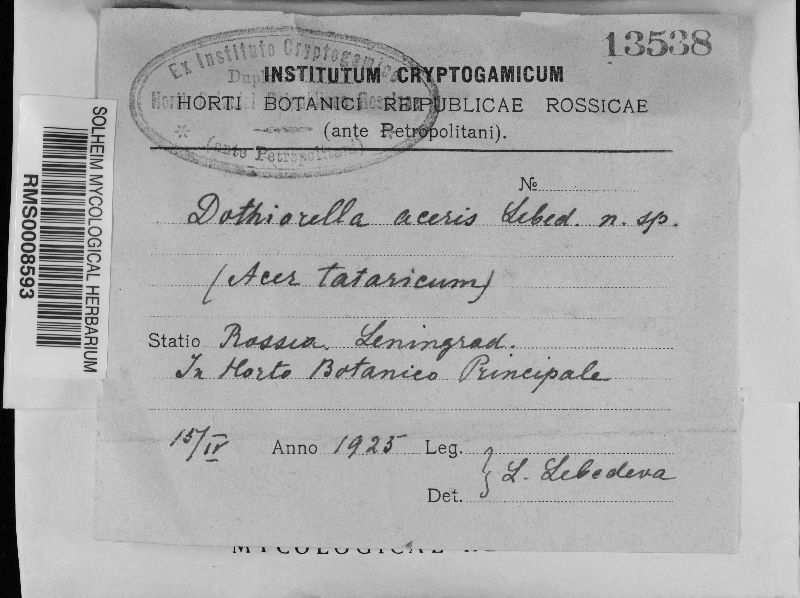 13538
Ex Instituto Cryptogamico
INSTITUTUM CRYPTOGAMICUM
HORTI BOTANICI REIPUBLICAE ROSSICAE
(ante Petropolitani).
(ante Petropolitani)
№
Dothiorella aceris Lebed. n. sp.
(Acer tataricum)
Statio Rossia. Leningrad.
In Horto Botanico Principale
15/IV Anno 1925 Leg.
Det. } L. Lebedeva
SOLHEIM MYCOLOGICAL HERBARIUM
RMS0008593
MYCOLOGICAL